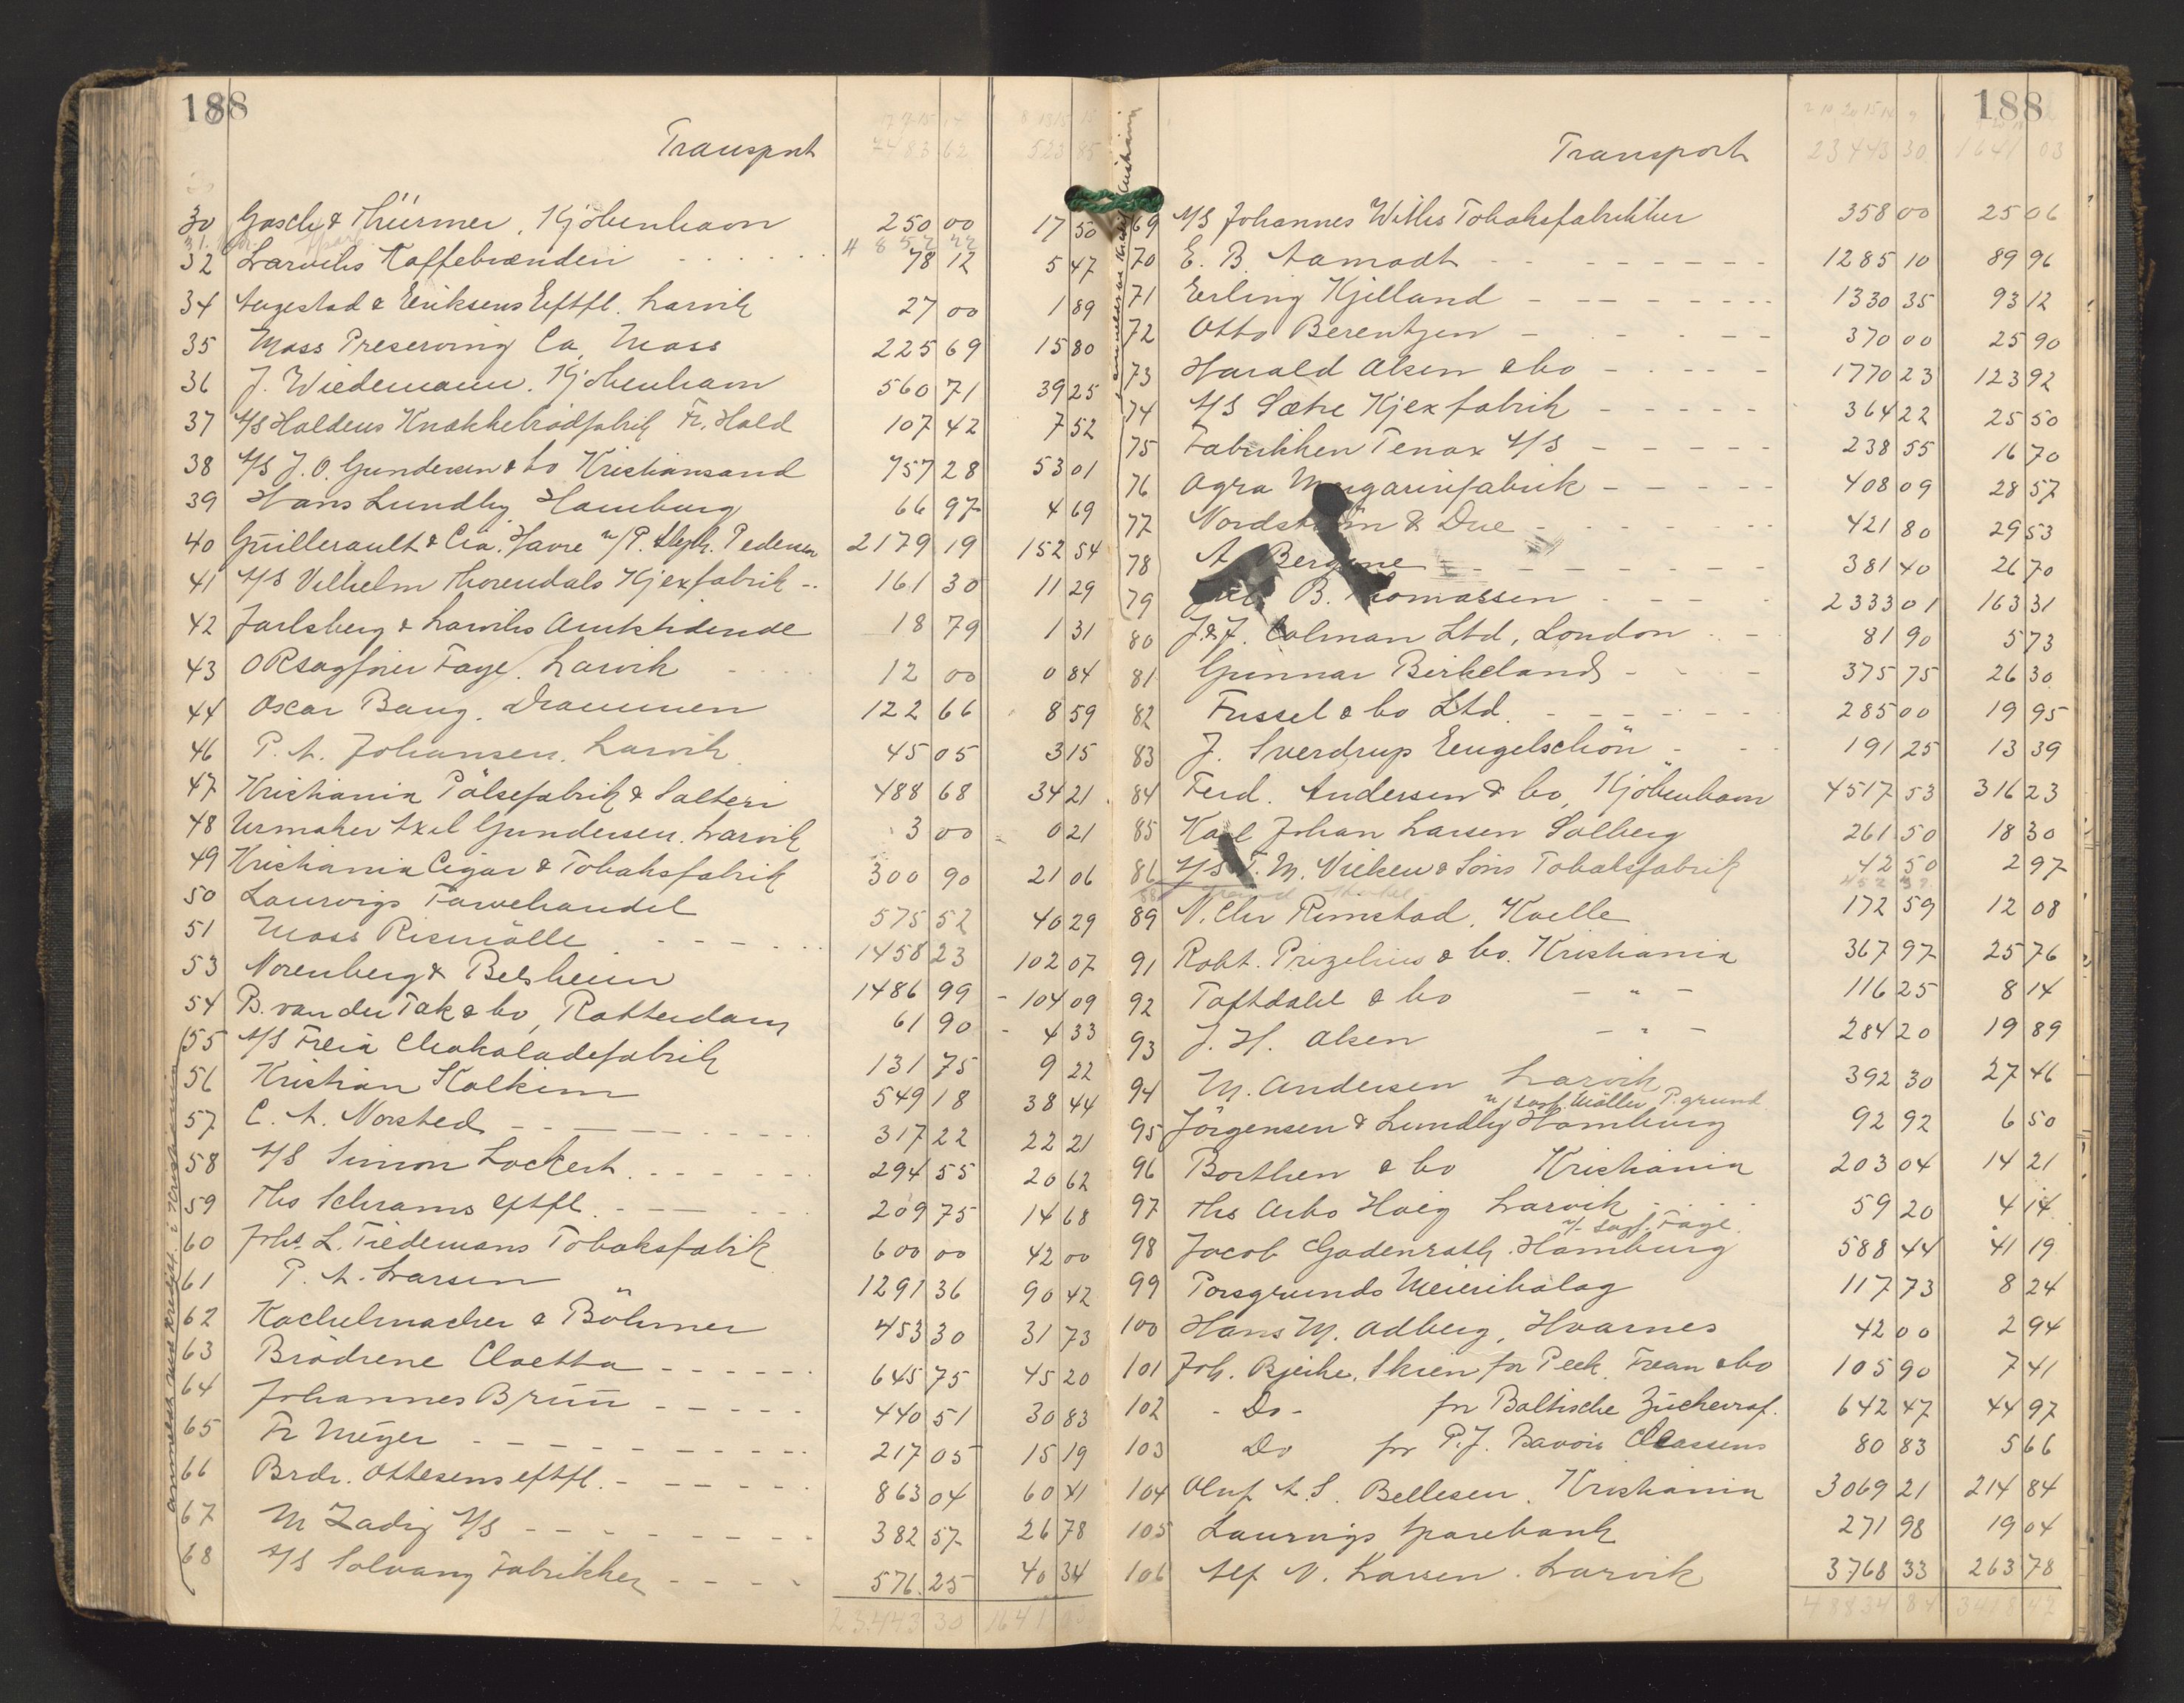 188
Transport 7483 62 523 85
30 Gosch & Thürmer, Kjöbenhavn 250 00 17 50
31. 4857 22
32 Larviks Kaffebrænderi 78 12 5 47
34 Augestad & Eriksens Eftfl. Larvik 27 00 1 89
35 Moss Preserving Co, Moss 225 69 15 80
36 J. Wiedemann, Kjöbenhavn 560 71 39 25
37 A/S Holdens Knækkebrödfabrik Fr. Hald 107 42 7 52
38 A/S J. O. Gundersen & Co Kristiansand 757 28 53 01
39 Hans Lundby Hamburg 66 97 4 69
40 Guillerault & Cia. Havre v/ P. Pedersen 2179 19 152 54
41 A/S Vilhelm Thorendals Kjexfabrik 161 30 11 29
42 Jarlsberg & Larviks Amtstidende 18 79 1 31
43 ORsagförer Faye. Larvik 12 00 0 84
44 Oscar Bang. Drammen 122 66 8 59
46 P. A. Johansen. Larvik 45 05 3 15
47 Kristiania Pölsefabrik & Salteri 488 68 34 21
48 Urmaker Axel Gundersen. Larvik 3 00 0 21
49 Kristiania Cigar & Tobaksfabrik 300 90 21 06
50 Laurvigs Farvehandel 575 52 40 29
51 Moss Rismölle 1458 23 102 07
53 Norenberg & Belsheim 1486 99 104 09
54 B. van der Tak & Co, Rotterdam 61 90 4 33
55 A/S Freia Chokoladefabrik 131 75 9 22
56 Kristian Kolkinn 549 18 38 44
57 C. A. Norsted 317 22 22 21
58 A/S Simon Lockert 294 55 20 62
59 Ths Schrams Eftfl. 209 75 14 68
60 Johs. L. Tiedemans Tobaksfabrik 600 00 42 00
61 P. A. Larsen 1291 36 90 42
62 Kachelmacher & Böhmer 453 30 31 73
63 Brödrene Cloetta 645 75 45 20
64 Johannes Bruun 440 51 30 83
65 Fr Meyer 217 05 15 19
66 Brdr. Ottesens eftfl. 863 04 60 41
67 M Zadig A/S 382 57 26 78
68 A/S Solvang Fabrikker 576 25 40 34
23443 30 1641 03
anmeldt ved Kreditf. i Kristiania
188
Transport 23443 30 1641 03
69 A/S Johannes Withs Tobaksfabrikker 358 00 25 06
70 E. B. Aamodt 1285 10 89 96
71 Erling Kjelland 1330 35 93 12
72 Otto Berentzen 370 00 25 90
73 Harald Olsen & Co 1770 23 123 92
74 A/S Sætre Kjexfabrik 364 22 25 50
75 Fabrikken Tenax A/S 238 55 16 70
76 Agra Margarinfabrik 408 09 28 57
77 Nordström & Due 421 80 29 53
78 A Bergene 381 40 26 70
79 B. Thomassen 2333 01 163 31
80 J. & J. Colman Ltd, London 81 90 5 73
81 Gunnar Birkeland 375 75 26 30
82 Fussel & Co Ltd. 285 00 19 95
83 J. Sverdrup Engelschön 191 25 13 39
84 Ferd. Andersen & Co, Kjöbenhavn 4517 53 316 23
85 Karl Johan Larsen Solberg 261 50 18 30
86 A/S T. M. Vieken & Söns Tobaksfabrik 42 50 2 97
89 N. Chr Rimstad, Kvelle 172 59 12 08
91 Robt. Prizelius & Co. Kristiania 367 97 25 76
92 Toftdahl & Co — " — 116 25 8 14
93 J. H. Olsen — " — 284 20 19 89
94 M. Andersen Larvik 392 30 27 46
v/ Sagf. Möller P.grund
95 Jörgensen & Lundby Hamburg 92 92 6 50
96 Borthen & Co Kristiania 203 04 14 21
97 Ths Arbo Höeg Larvik 59 20 4 14
v/ Sagf. Faye.
98 Jacob Godenrath. Hamburg 588 44 41 19
99 Porsgrunds Meieribolag 117 73 8 24
100 Hans M. Odberg, Hvarnes 42 00 2 94
101 Joh. Bjerke, Skien for Peek, Frean & Co 105 90 7 41
102 - Do - for Baltische Zuckerraf. 642 47 44 97
103 Do for P. J. Claassens 80 83 5 66
104 Oluf A. S. Bellesen. Kristiania 3069 21 214 84
105 Laurvigs Sparebank 271 98 19 04
106 Alf N. Larsen. Larvik 3768 33 263 78
48834 84 3418 42